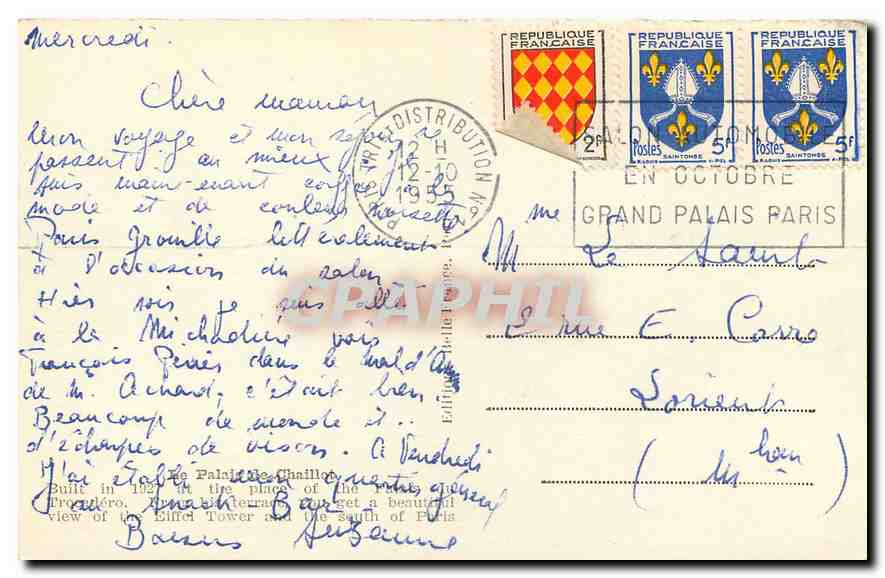 Mercredi.
Chère maman
Mon voyage et mon séjour se
passent au mieux je
suis maintenant coiffée à la
mode et de couleur noisette
Paris grouille littéralement
à l'occasion du salon
Hier soir je suis allée
à la Michodière voir
François Périer dans le mal d'
de M. Achard, c'était bien.
Beaucoup de monde et..
d'écharpes de vison. A Vendredi
J'ai établi mon quartier général
au Bar
Baisers Suzanne
Le Palais de Chaillot
Built in 1937 at the place of the
Trocadéro. From his terrace, you get a beautiful
view of the Eiffel Tower and the south of Paris
Editions Belle France,
REPUBLIQUE
FRANÇAISE
2F
REPUBLIQUE
FRANÇAISE
Postes 5F
SAINTONGE
REPUBLIQUE
FRANÇAISE
Postes 5F
SAINTONGE
PARIS DISTRIBUTION
12 H
12-10
1955
SALON AUTOMOBILE
EN OCTOBRE
GRAND PALAIS PARIS
Mme Le Saint
2 rue E. Corro
Lorient
(Mbhan)
CPAPHIL